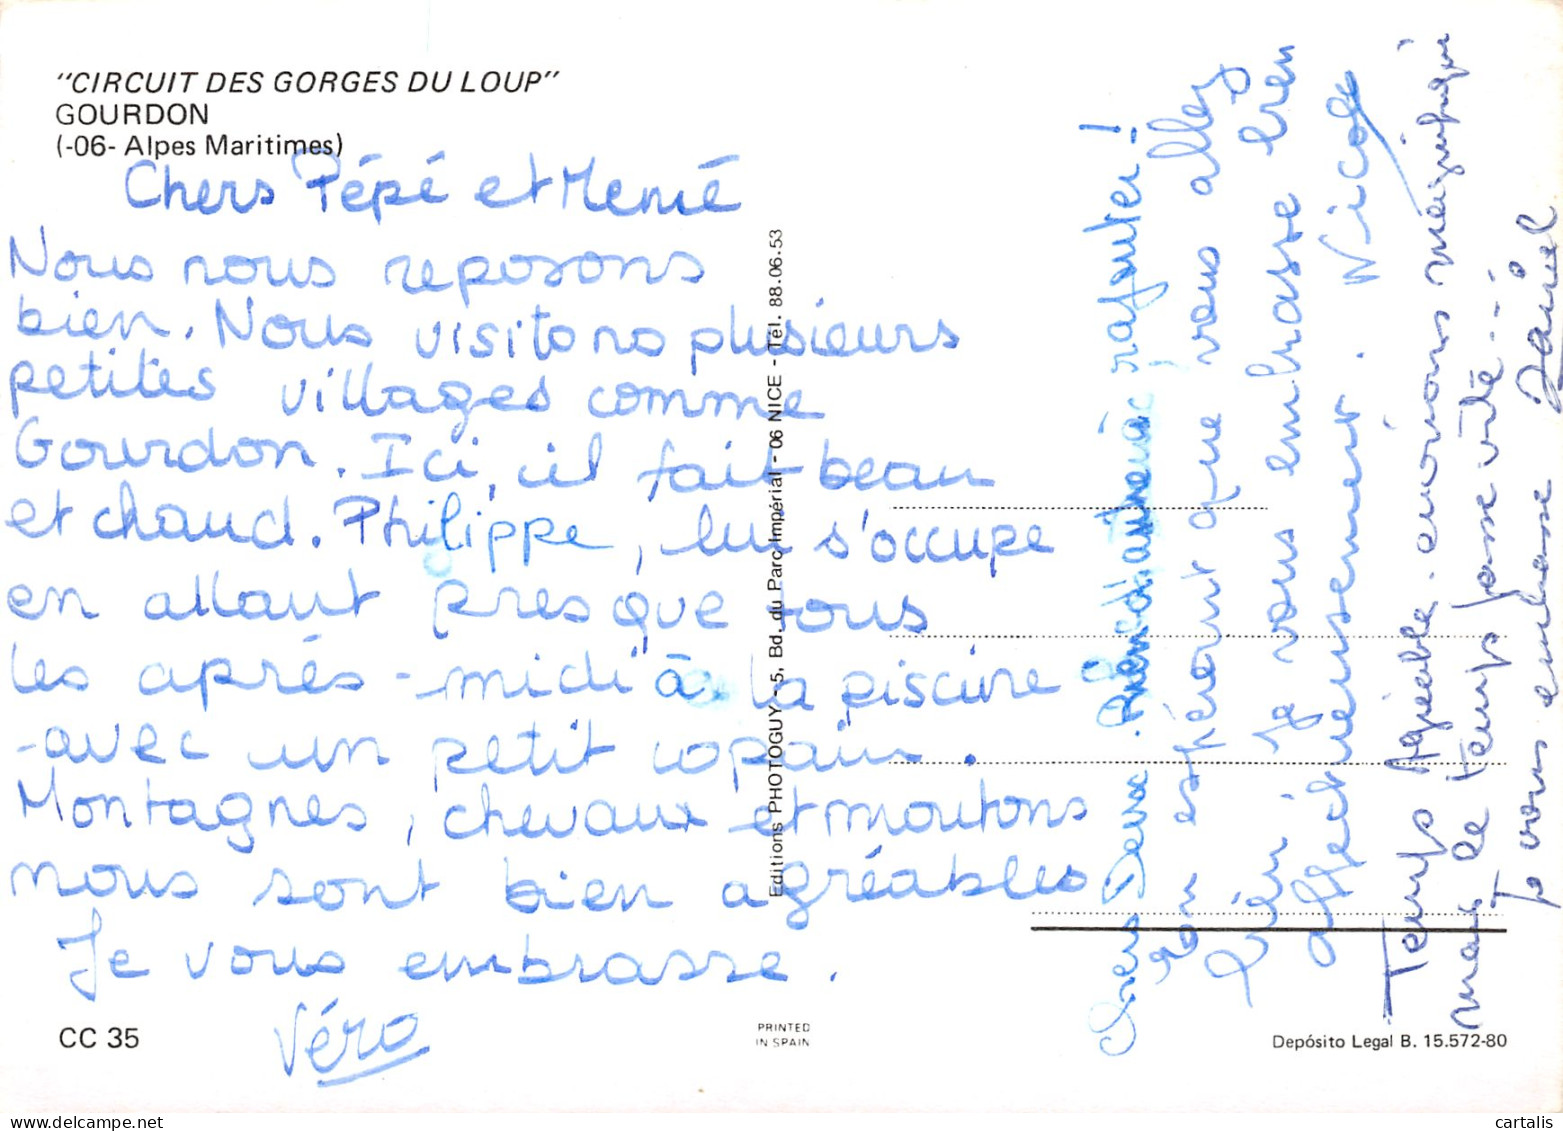 "CIRCUIT DES GORGES DU LOUP"
GOURDON
(-06- Alpes Maritimes)
Chers Pépé et Mémé
Nous nous reposons
bien. Nous visitons plusieurs
petites villages comme
Gourdon. Ici, il fait beau
et chaud. Philippe, lui s'occupe
en allant presque tous
les après-midi à la piscine
avec un petit copain.
Montagnes, chevaux et moutons
nous sont bien agréables
Je vous embrasse.
Véro
CC 35
Editions PHOTOGUY - 5, Bd. du Parc Impérial - 06 NICE - Tél. 88.06.53
PRINTED
IN SPAIN
Chers Deux. Rien d'autre à rajouter !
En espérant que vous allez
bien. Je vous embrasse bien
affectueusement. Nicole
Temps Agréable. environs magnifiques
mais le temps passe vite...
Je vous embrasse Daniel
Depósito Legal B. 15.572-80
cartalis